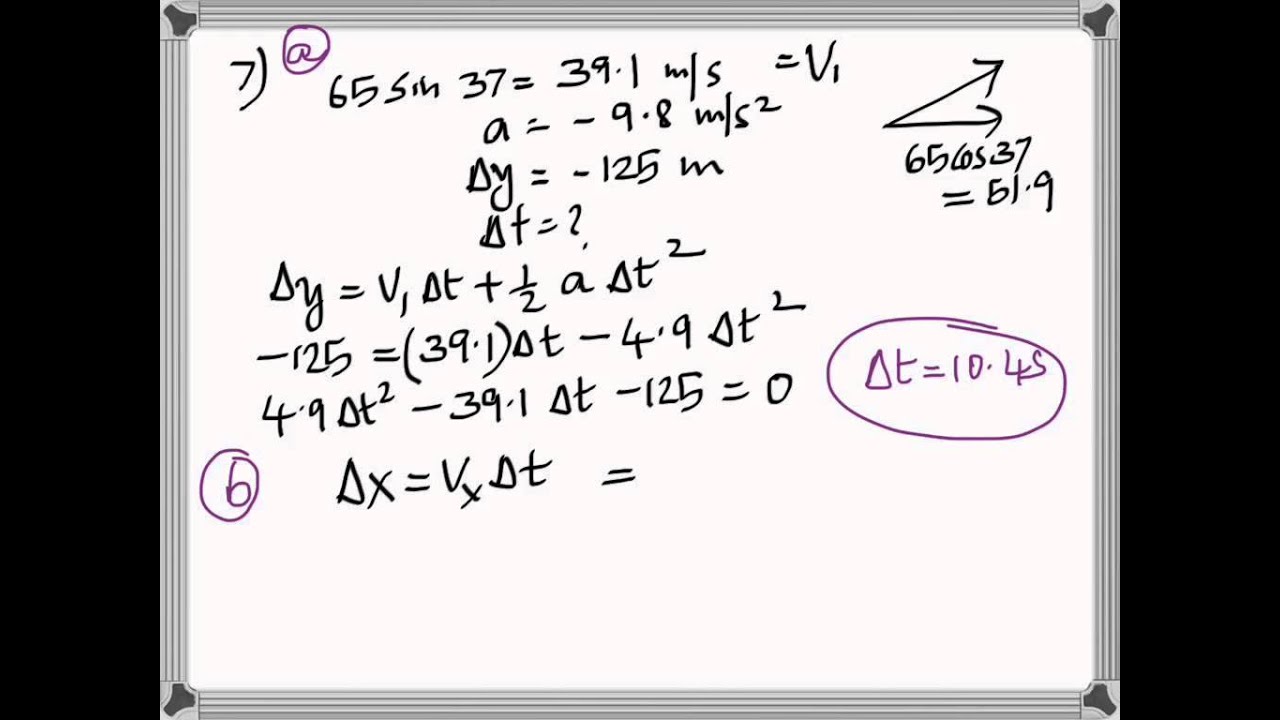 7) a 65 sin 37 = 39.1 m/s = V₁
a = - 9.8 m/s²
Δy = - 125 m
Δt = ?
65 cos 37
= 51.9
Δy = V₁ Δt + ½ a Δt²
-125 = (39.1)Δt - 4.9 Δt²
4.9 Δt² - 39.1 Δt - 125 = 0
Δt = 10.4s
b Δx = Vₓ Δt =